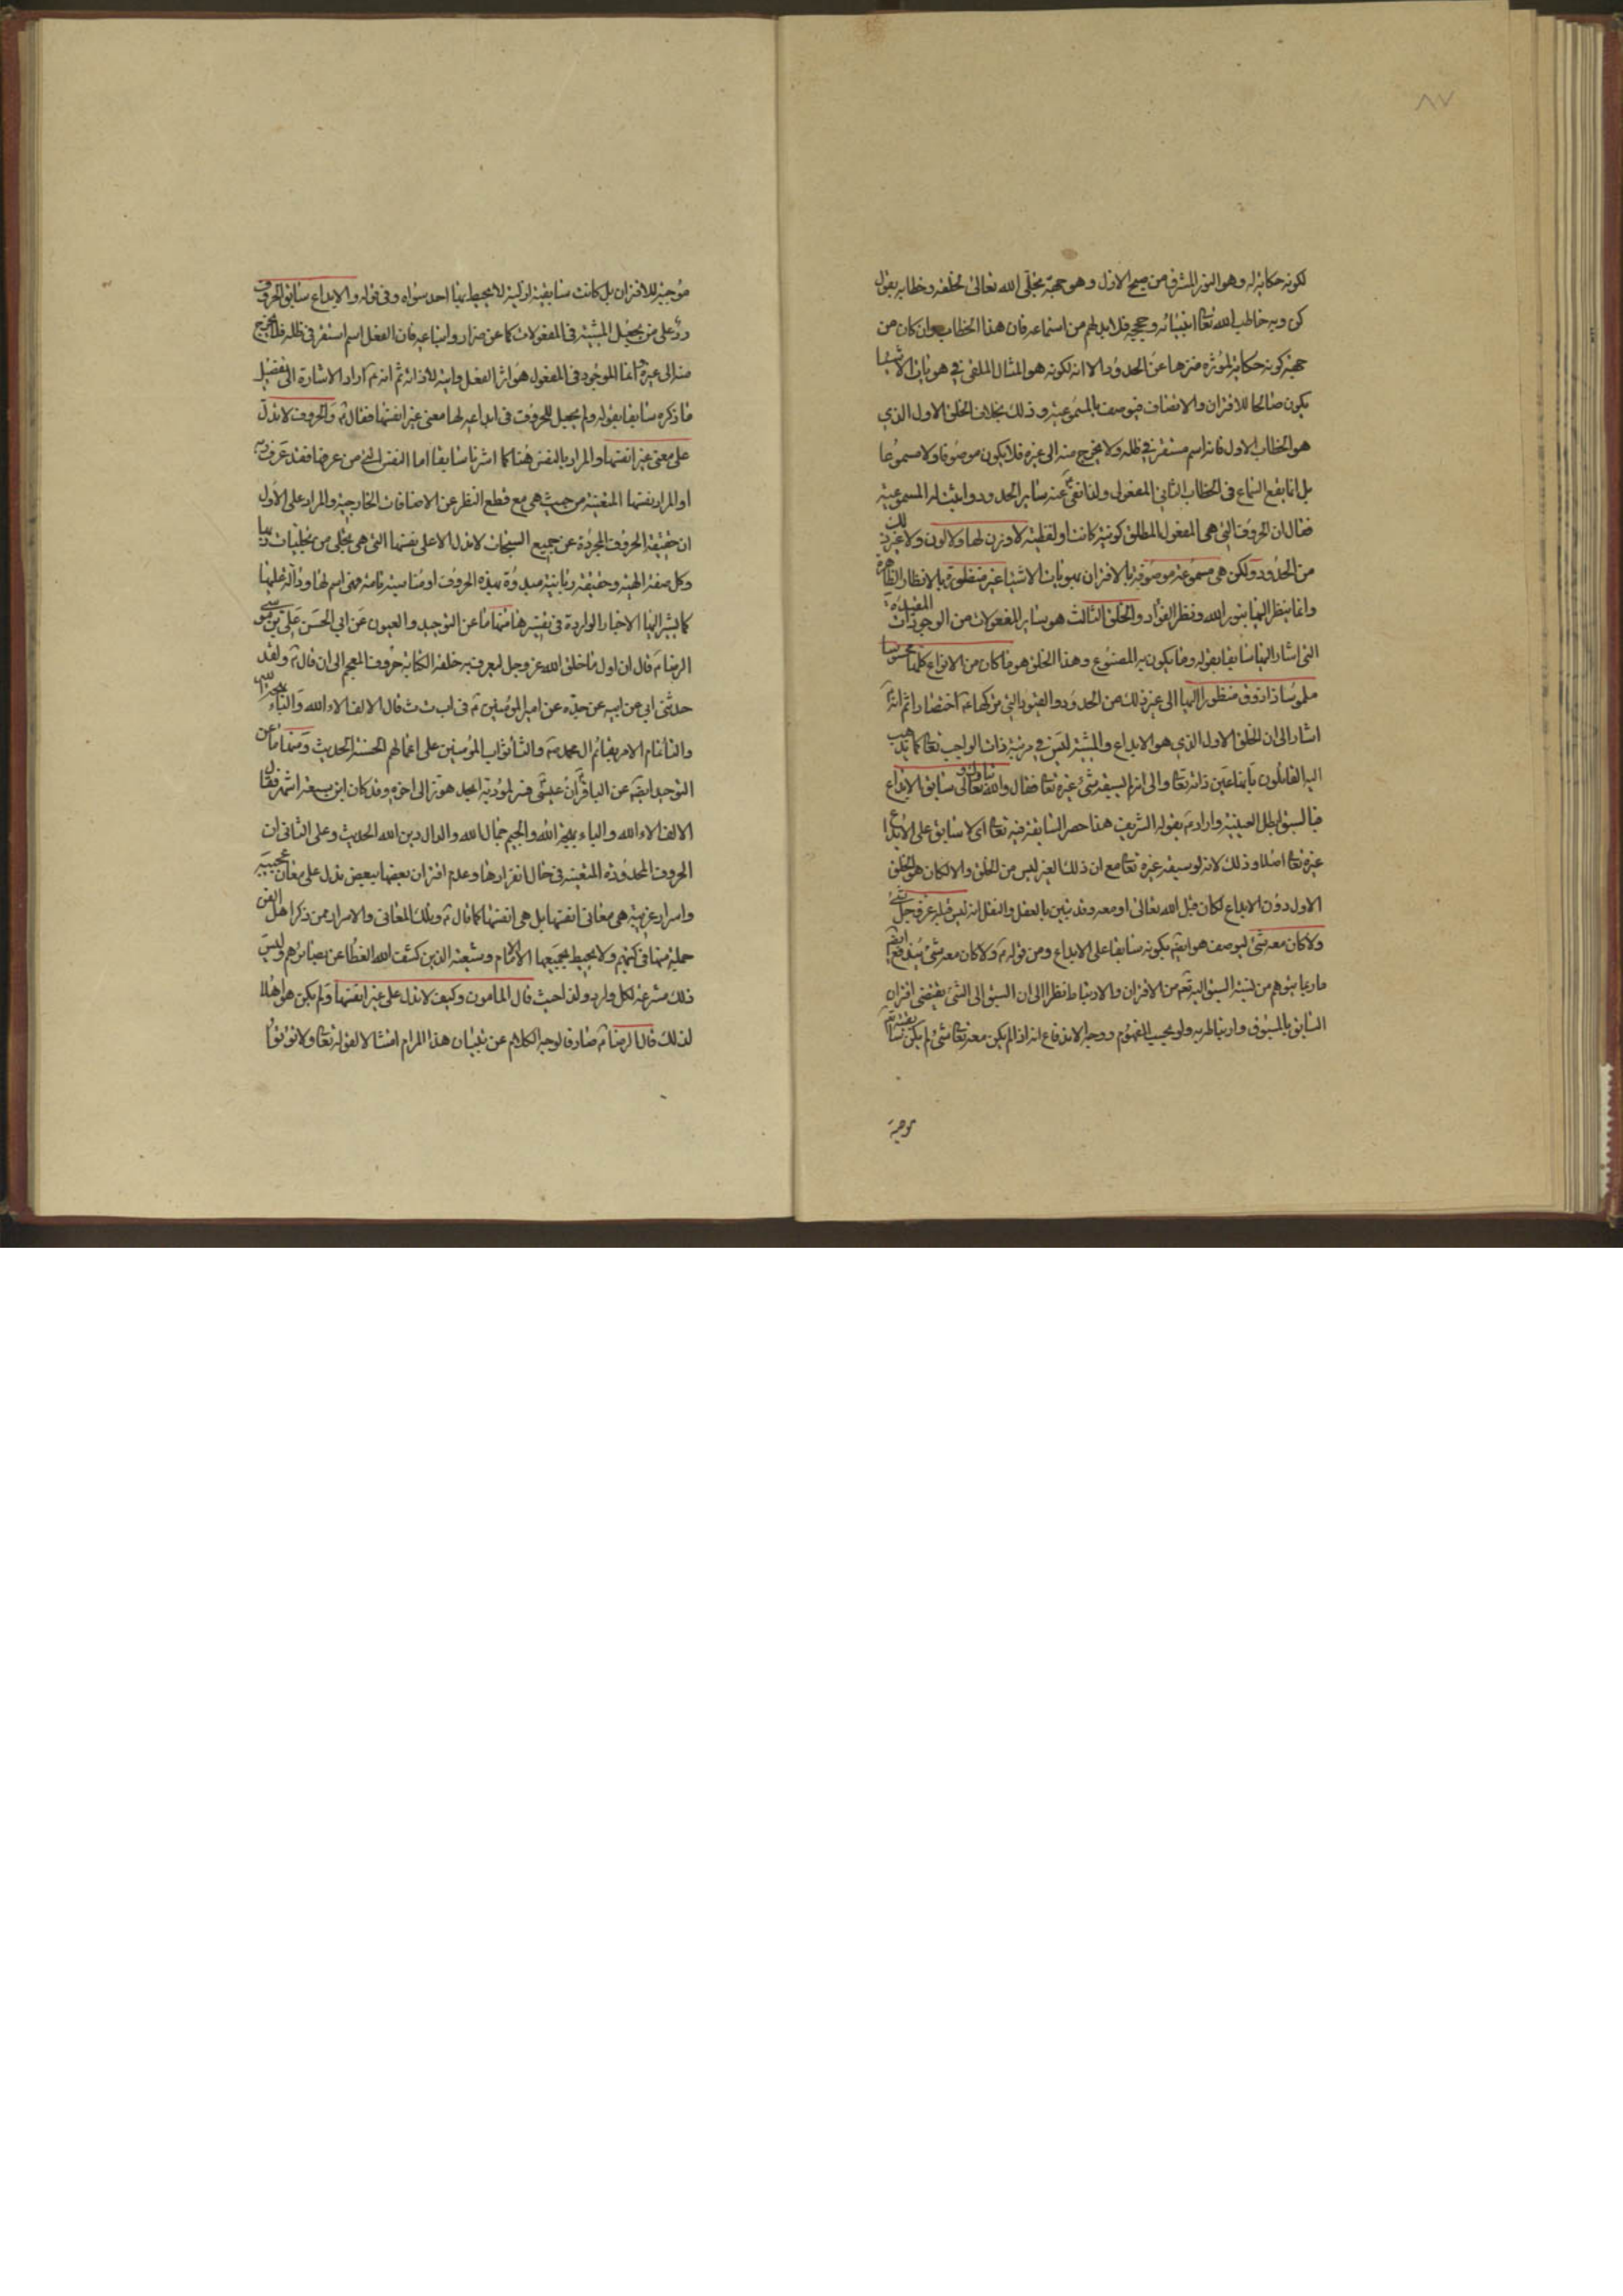 ٨٧
لكونه حكاية له وهو النور المشرق من صبح الازل وهو جهة تجلّى الله تعالى لخلقه وخطابه بقول
كن وبه خاطب الله تعا انبيائه وحججه فلا بد لهم من استماعه فان هذا الخطاب وان كان من
جهة كونه حكاية لمؤثره منزها عن الحدود الا انه لكونه هو المثال الملقى في هويات الاشيا
يكون صالحا للاقتران والاتصاف فيوصف بالمسموعية وذلك بخلاف الخلق الاول الذي
هو الخطاب الاول فانه اسم مستقر في ظله ولا يخرج منه الى غيره فلا يكون موصوفا ولا مسموعا
بل انما يقع السماع في الخطاب الثاني المفعولى ولذا نفى عنه ساير الحدود واثبت له المسموعية
فقال ان الحروف التي هي المفعول المطلق كونية كانت او لفظية لا وزن لها ولا لون ولا غير ذلك
من الحدود ولكن هي مسموعة موصوفة بالاقتران بهويات الاشيا غير منظورة بالانظار الظاهرة
وانما ينظر اليها بنور الله ونظر الفؤاد والخلق الثالث هو ساير المفعولات من الوجودات المقيدة
التي اشار اليها سابقا بقوله وما يكون به المصنوع وهذا الخلق هو ما كان من الانواع كلها محسوسا
ملموسا ذا ذوق منظورا اليها الى غير ذلك من الحدود والقيود التي تركها ع اختصارا ثم انه ع
اشار الى ان الخلق الاول الذي هو الابداع والمشية ليس في مرتبة ذات الواجب تعا كما يذهب
اليه القائلون بانها عين ذاته تعا والى انه لا يسبقه شئ غيره تعا فقال والله تبارك وتعالى سابق الابداع
فبالسبق ابطل العينية واراد ع بقوله الشريف هذا حصر السابقة فيه تعا اى لا سابق على الابداع
غيره تعا اصلا وذلك لانه لو سبقه غيره تعا مع ان ذلك الغير ليس من الخلق والا لكان هو الخلق
الاول دون الابداع لكان قبل الله تعالى او معه وقد تبين بالعقل والنقل انه ليس قبله عز وجل شئ
ولا كان معه شئ ليوصف هو ايضا بكونه سابقا على الابداع ومن قوله ع ولا كان معه شئ يندفع ايضا
ما ربما يتوهم من نسبة السبق اليه تعا من الاقتران والارتباط نظرا الى ان السبق الى الشئ يقتضى اقتران
السابق بالمسبوق وارتباطه به ولو بحسب المفهوم ووجه الاندفاع انه اذا لم يكن معه تعا شئ لم يكن سابقيته
موجبة
موجبة للاقتران بل كانت سابقية ازلية لا يحيط بها احد سواه وفى قوله والابداع سابق الحروف
ردّ على من يجعل المشية في المفعولات كما عن ضرار واتباعه فان الفعل اسم استقر في ظله فلا يخرج
منه الى غيره وانما الموجود في المفعول هو اثر الفعل وايته لا ذاته ثم انه ع اراد الاشارة الى تفصيل
ما ذكره سابقا بقوله ولم يجعل للحروف في ابداعه لها معنى غير انفسها فقال ع والحروف لا تدل
على معنى غير انفسها والمراد بالنفس هنا كما اشرنا سابقا اما النفس التي من عرفها فقد عرف ربه
او المراد نفسها المتعينة من حيث هي مع قطع النظر عن الاضافات الخارجية والمراد على الاول
ان حقيقة الحروف المجردة عن جميع السبحات لا تدل الا على نفسها التي هي تجلى من تجليات ربها
وكل صفة الهية وحقيقة ربانية مبدوة بهذه الحروف او مناسبة تامة فهى اسم لها ودالة عليها
كما يشير اليها الاخبار الواردة في تفسيرها منها ما عن التوحيد والعيون عن ابي الحسن على بن موسى
الرضا ع قال ان اول ما خلق الله عز وجل ليعرف به خلقه الكتابة حروف المعجم الى ان قال ع ولقد
حدثنى ابي عن ابيه عن جده عن امير المؤمنين ع في ا ب ت ث قال الالف الاء الله والباء بهجة الله
والتا تمام الامر بقائم ال محمد ص والثا ثواب المؤمنين على اعمالهم الحسنة الحديث ومنها ما عن
التوحيد ايضا عن الباقر ع ان عيسى وقد كان ابن سبعة اشهر فقال
الالف الاء الله والباء بهجة الله والجيم جمال الله والدال دين الله الحديث وعلى الثانى ان
الحروف المحدودة المتعينة في حال انفرادها وعدم اقتران بعضها ببعض تدل على معان عجيبة
واسرار غريبة هي معانى انفسها بل هي انفسها كما قال ع وتلك المعانى والاسرار من ذكر اهل الفن
جملة منها في كتبهم ولا يحيط بجميعها الا الامام وشيعته الذين كشف الله الغطا عن بصائرهم وليس
ذلك مشرعة لكل وارد ولذا حيث قال المامون وكيف لا تدل على غير انفسها ولم يكن هو اهلا
لذلك قال الرضا ع صارفا لوجه الكلام عن تبيان هذا المرام امتثالا لقوله تعا ولا تؤتوا